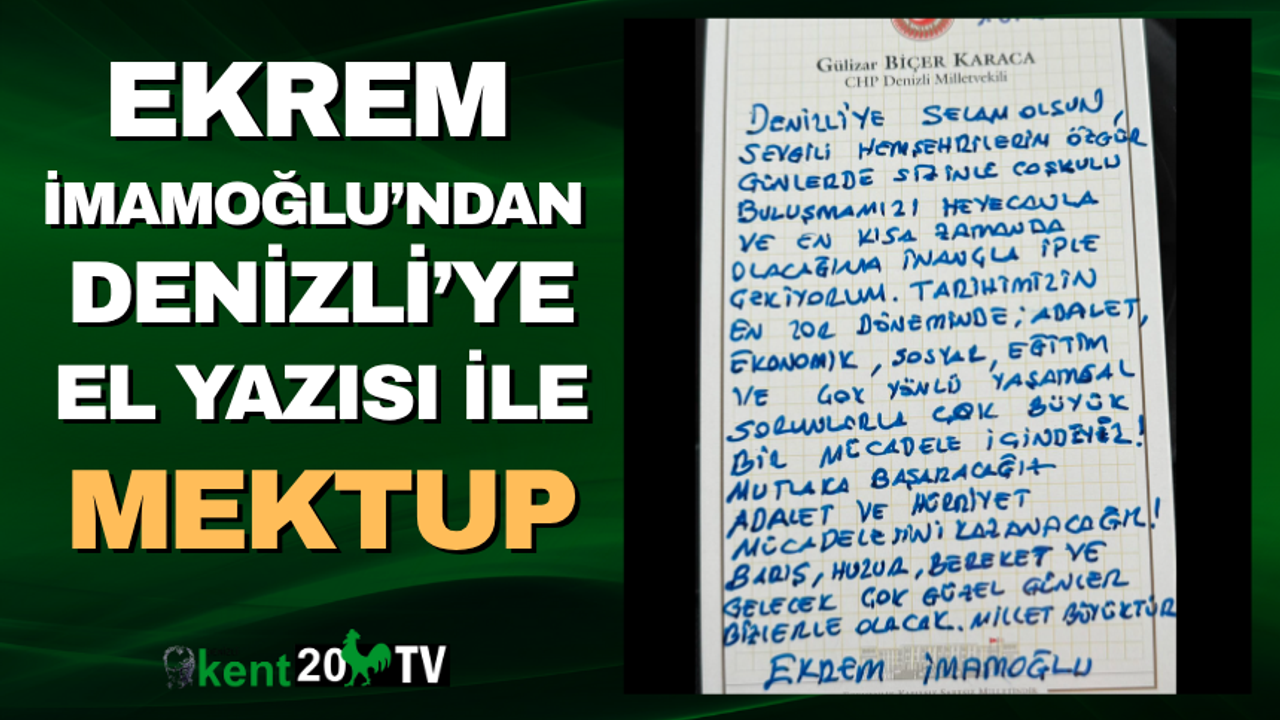 EKREM
İMAMOĞLU'NDAN
DENİZLİ'YE
EL YAZISI İLE
MEKTUP
kent 20 TV
Gülizar BİÇER KARACA
CHP Denizli Milletvekili
DENİZLİ'YE SELAM OLSUN,
SEVGİLİ HEMŞEHRİLERİM ÖZGÜR
GÜNLERDE SİZİNLE COŞKULU
BULUŞMAMIZI HEYECANLA
VE EN KISA ZAMANDA
OLACAĞINA İNANÇLA İPLE
ÇEKİYORUM. TARİHİMİZİN
EN ZOR DÖNEMİNDE; ADALET,
EKONOMİK, SOSYAL, EĞİTİM
VE ÇOK YÖNLÜ YAŞAMSAL
SORUNLARLA ÇOK BÜYÜK
BİR MÜCADELE İÇİNDEYİZ!
MUTLAKA BAŞARACAĞIZ
ADALET VE HÜRRİYET
MÜCADELESİNİ KAZANACAĞIZ!
BARIŞ, HUZUR, BEREKET VE
GELECEK ÇOK GÜZEL GÜNLER
BİZLERLE OLACAK. MİLLET BÜYÜKTÜR
EKREM İMAMOĞLU